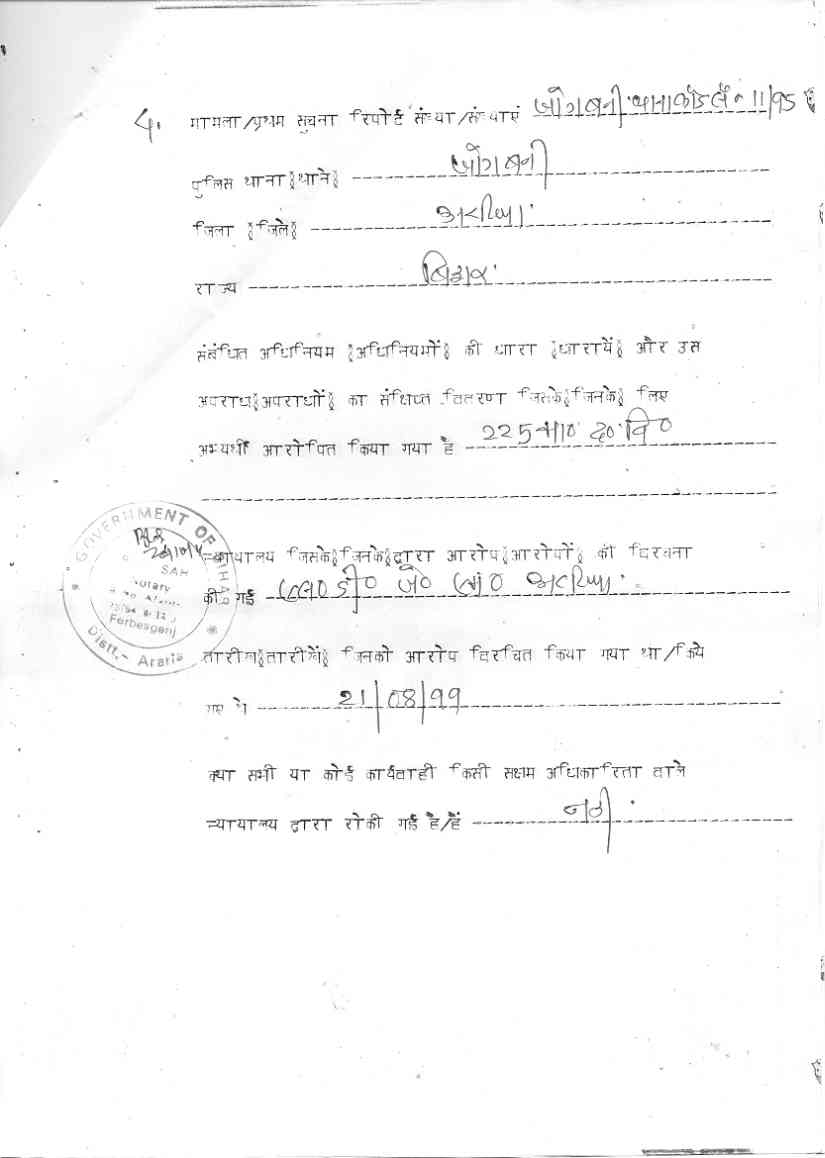 4. मामला/प्रथम सूचना रिपोर्ट संख्या/संख्याएं जोगबनी थाना कांड सं० 11/95
पुलिस थाना (थाने) जोगबनी
जिला (जिले) अररिया
राज्य बिहार
संबंधित अधिनियम (अधिनियमों) की धारा (धारायें) और उस
अपराध(अपराधों) का संक्षिप्त वितरण जिसके(जिनके) लिए
अभ्यर्थी आरोपित किया गया है 225 भा० द० वि०
GOVERNMENT OF BIHAR
SAH
Notary
Forbesganj
Distt.- Araria
न्यायालय जिसके(जिनके)द्वारा आरोप(आरोपों) की विरचना
की गई एस० डी० जे० एम० अररिया
तारीख(तारीखें) जिनको आरोप विरचित किया गया था/किये
गए थे 21/08/99
क्या सभी या कोई कार्यवाही किसी सक्षम अधिकारिता वाले
न्यायालय द्वारा रोकी गई है/हैं नहीं